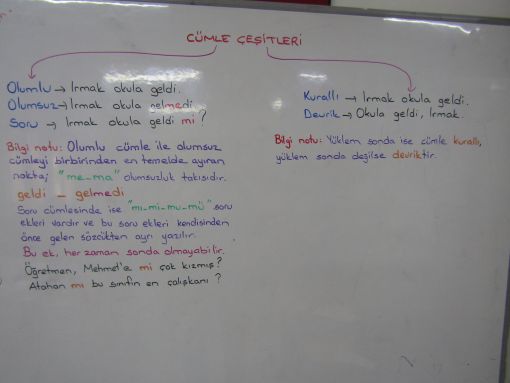 CÜMLE ÇEŞİTLERİ
Olumlu → Irmak okula geldi.
Olumsuz → Irmak okula gelmedi.
Soru → Irmak okula geldi mi?
Bilgi notu: Olumlu cümle ile olumsuz
cümleyi birbirinden en temelde ayıran
nokta; "me-ma" olumsuzluk takısıdır.
geldi - gelmedi
Soru cümlesinde ise "mı-mi-mu-mü" soru
ekleri vardır ve bu soru ekleri kendisinden
önce gelen sözcükten ayrı yazılır.
Bu ek, her zaman sonda olmayabilir.
Öğretmen, Mehmet'e mi çok kızmış?
Atahan mı bu sınıfın en çalışkanı?
Kurallı → Irmak okula geldi.
Devrik → Okula geldi, Irmak.
Bilgi notu: Yüklem sonda ise cümle kurallı,
yüklem sonda değilse devriktir.